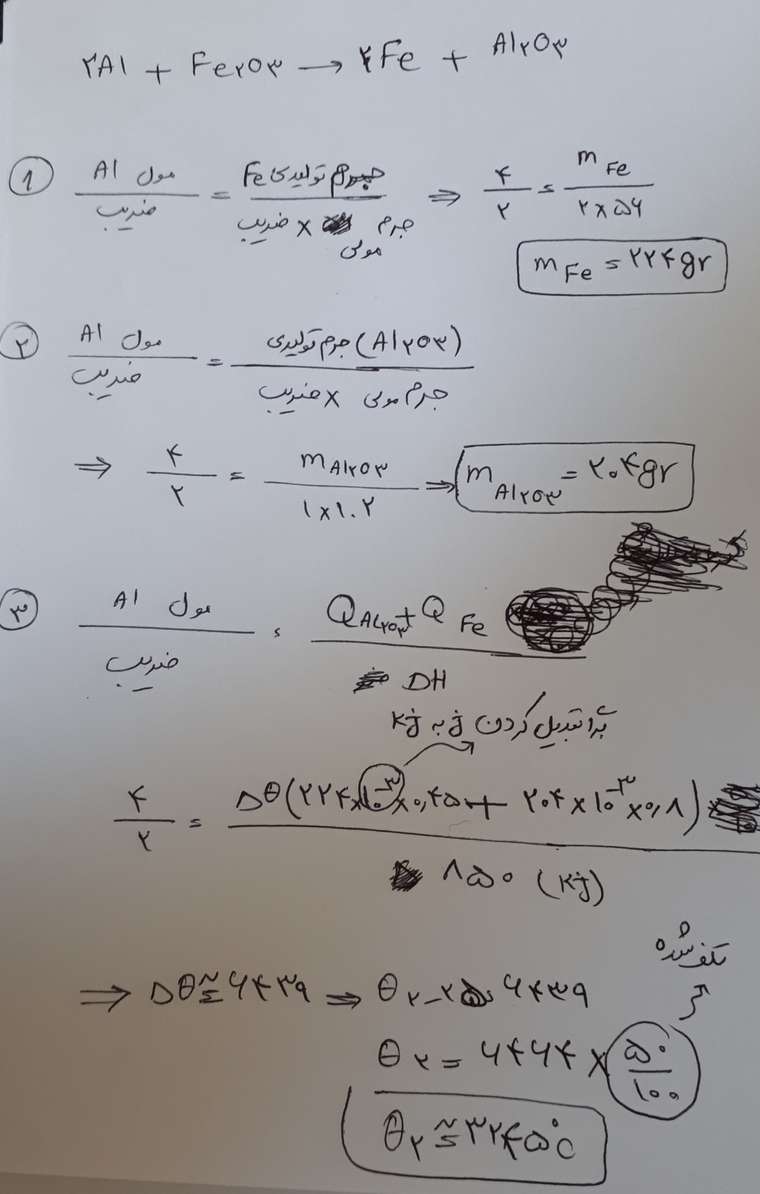 ۲Al + Fe۲O۳ → ۲Fe + Al۲O۳
① مول Al / ضریب = جرم تولیدی Fe / ضریب × جرم مولی ⇒ ۴/۲ = mFe / ۲×۵۶
mFe = ۲۲۴gr
② مول Al / ضریب = جرم تولیدی (Al۲O۳) / ضریب × جرم مولی
⇒ ۴/۲ = mAl۲O۳ / ۱×۱۰۲ ⇒ mAl۲O۳ = ۲۰۴gr
③ مول Al / ضریب = QAl۲O۳ + QFe / DH
برا تبدیل کردن j به kj
۴/۲ = Δθ(۲۲۴×۱۰⁻³×۰,۴۵ + ۲۰۴×۱۰⁻³×۰,۸) / ۸۵۰ (kj)
تلف شده
⇒ Δθ ≃ ۶۴۳۹ ⇒ θ۲-۲۵ = ۶۴۳۹
θ۲ = ۶۴۶۴ × ۵۰/۱۰۰
θ۲ ≃ ۳۲۴۵°c